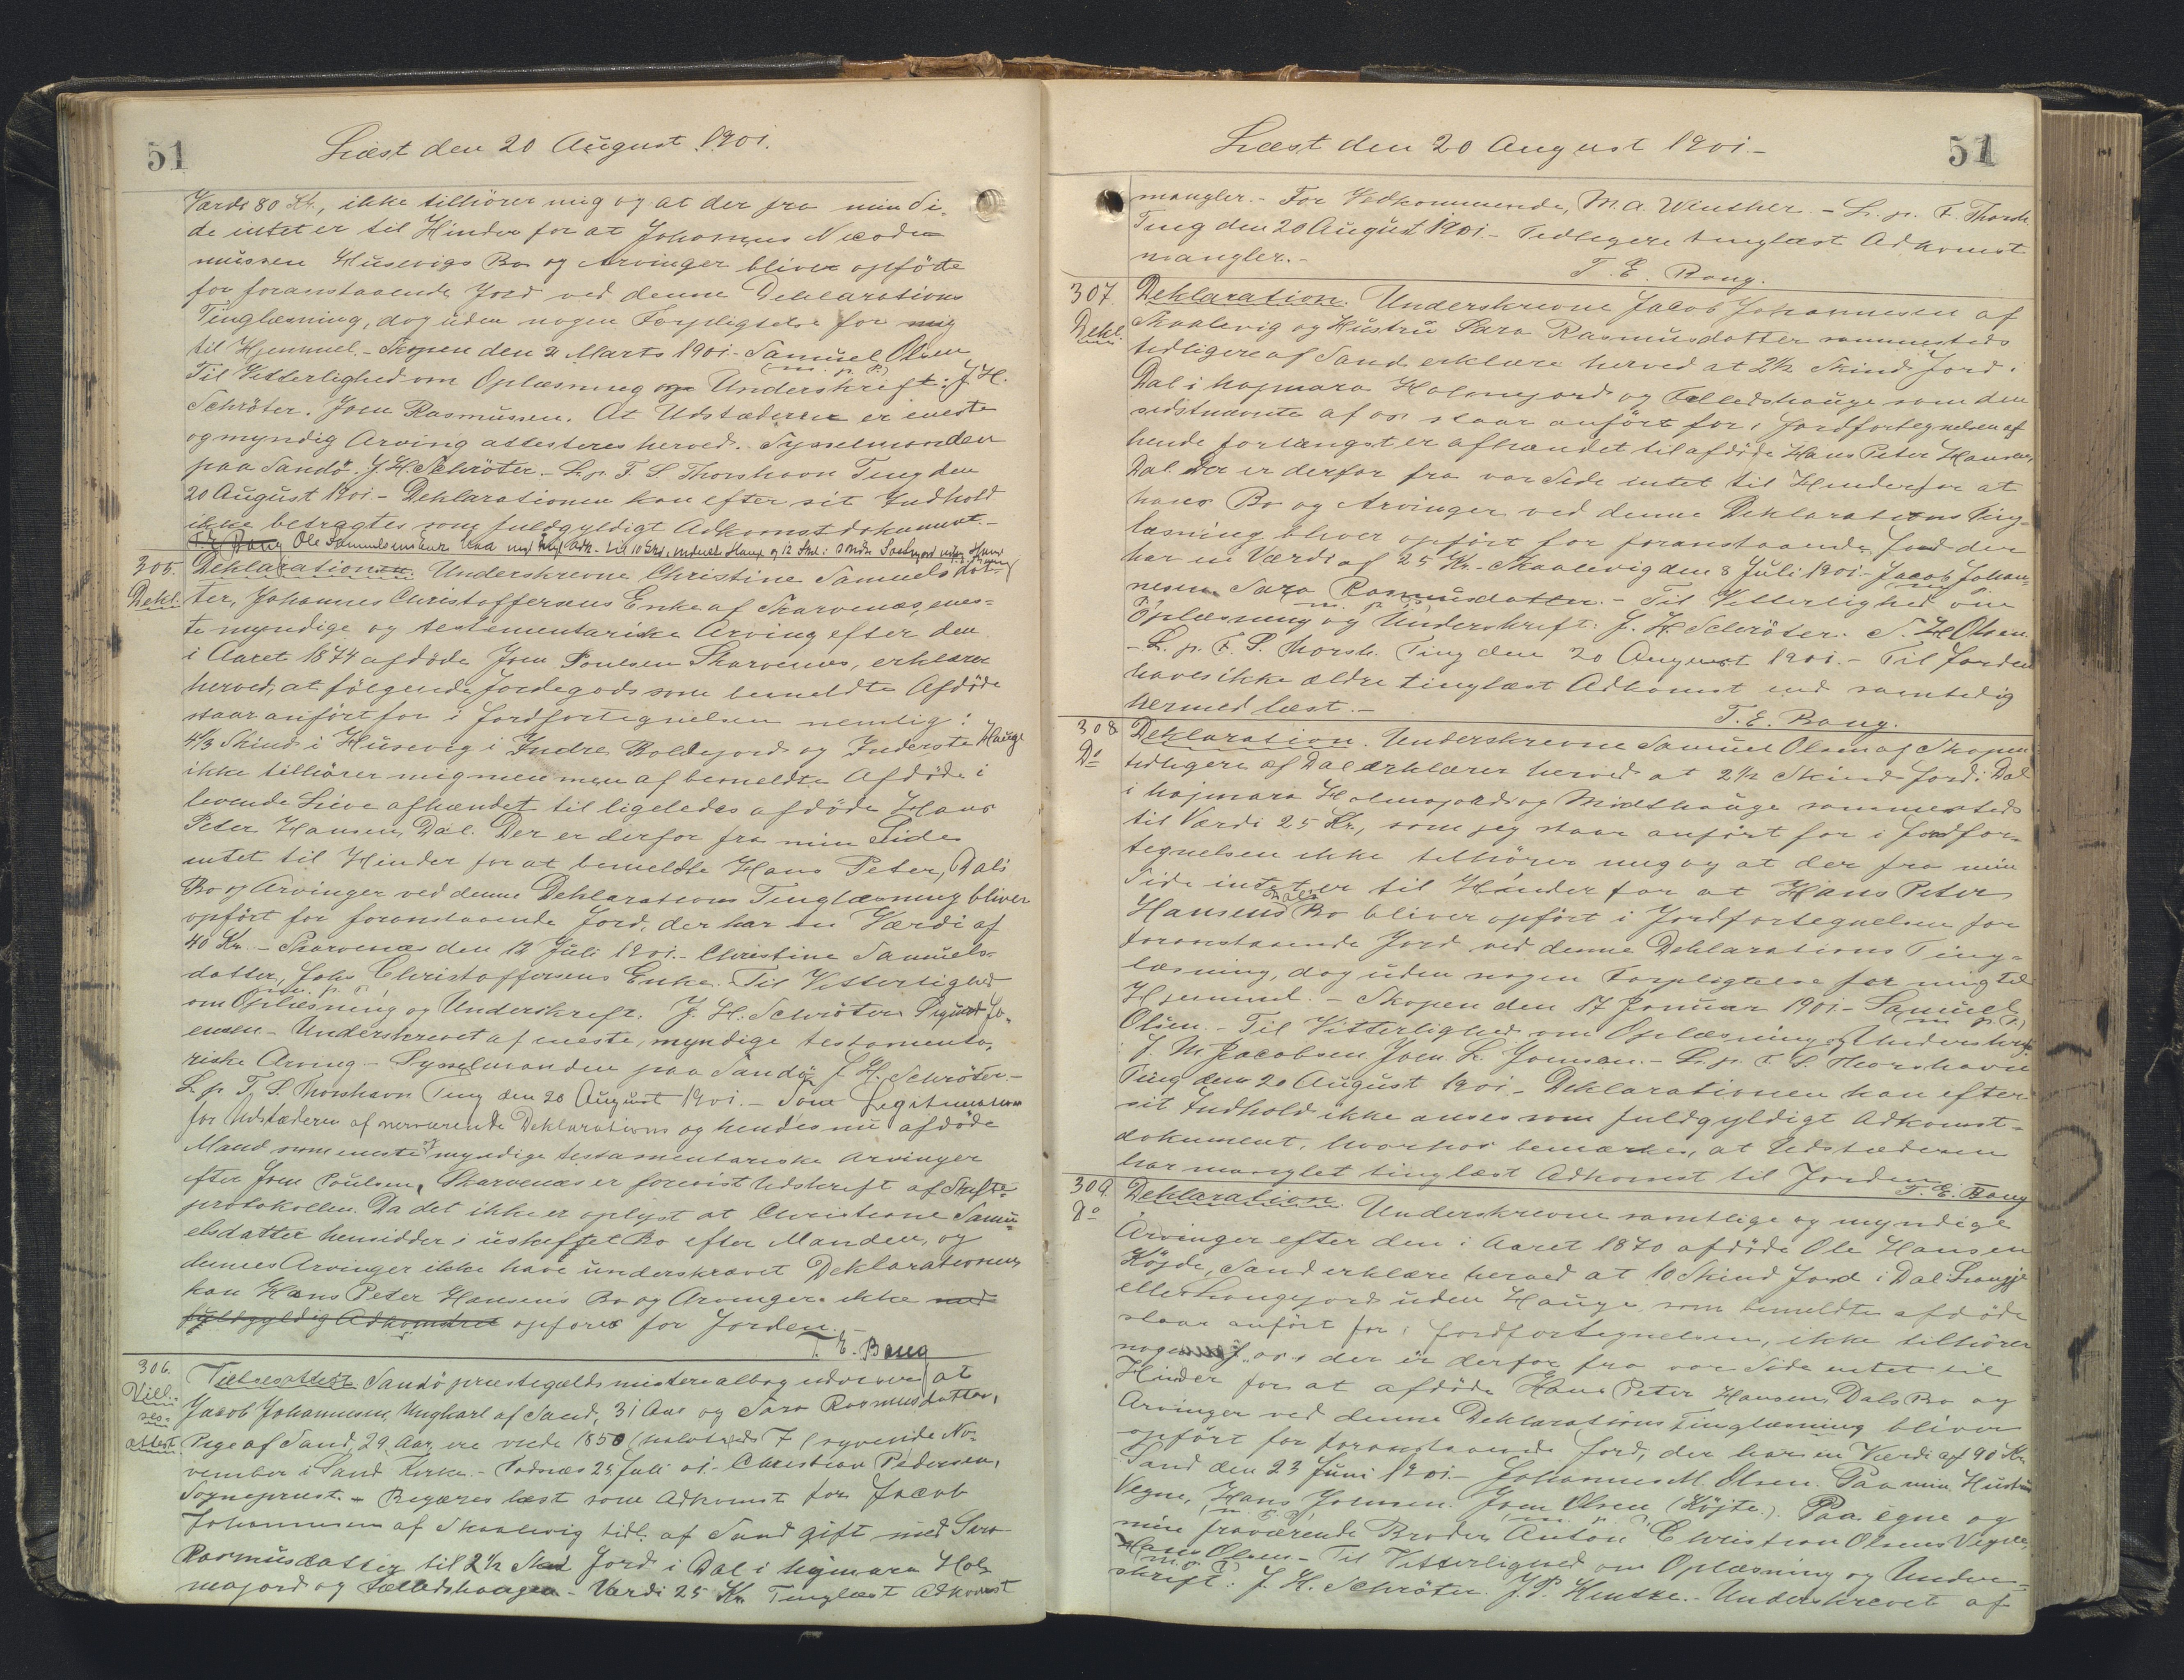 51
Læst den 20 August 1901.
Værdi 80 Kr., ikke tilhører mig og at der fra min Si-
de intet er til Hinder for at Johannes Nicode-
mussen Husevigs Bo og Arvinger bliver opförte
for foranstaaende Jord ved denne Deklarations
Tinglæsning, dog uden nogen Forpligtelse for mig
til Hjemmel. - Skopen den 21 Marts 1901. - Samuel Olsen
(m. p. P.)
Til Vitterlighed om Oplæsning og Underskrift: J. H.
Schröter. Joen Rasmussen. At Udstæderen er eneste
og myndig Arving attesteres herved. Sysselmanden
paa Sandö. J. H. Schröter. - L. p. F. S. Thorshavn Ting den
20 August 1901 - Deklarationen kan efter sit Indhold
ikke betragtes som fuldgyldigt Adkomstdokument. -
T. E. Bang Ole Samuelsens Enke
305.
Dekl.
Deklarationen. Underskrevne Christine Samuelsdat-
ter, Johannes Christoffersens Enke af Skarvenæs, enes-
te myndige og testementariske Arving efter den
i Aaret 1874 afdöde Joen Poulsen Skarvenæs, erklærer
herved, at fölgende Jordegods som bemeldte Afdöde
staar anfört for i Jordfortegnelsen nemlig:
4 1/3 Skind i Husevig i Indre Boldejord og Inderste Hauge
ikke tilhörer mig men men af bemeldte Afdöde i
levende Live afhændet til ligeledes afdöde Hans
Peter Hansen, Dal. Der er derfor fra min Side
intet til Hinder for at bemeldte Hans Peter, Dals
Bo og Arvinger ved denne Deklarations Tinglæsning bliver
opfört for foranstaaende Jord, der har en Værdi af
40 Kr. - Skarvenæs den 12 Juli 1901. - Christine Samuels-
datter, Johs Christoffersens Enke. Til Vitterlighed
m. p. P.
om Oplæsning og Underskrift. J. H. Schröter Sigurd Jo-
ensen - Underskrevet af eneste, myndige testamenta-
riske Arving. - Sysselmanden paa Sandö J. H. Schröter -
L. p. F. S. Thorshavn Ting den 20 August 1901. - Som Legitimation
for Udstæderen af nærværende Deklarations og hendes nu afdöde
Mand som eneste myndige testamentariske Arvinger
efter Joen Poulsen, Skarvenæs er forevist Udskrift af Skifte-
protokollen. Da det ikke er oplyst at Christiane Samu-
elsdatter hensidder i uskiftet Bo efter Manden, og
dennes Arvinger ikke have underskrevet Deklarationen
kan Hans Peter Hansens Bo og Arvinger ikke med
fuldgyldig Adkomst opföres for Jorden.
T. E. Bang
306.
Vill.
ses-
attest
Vielsesattest. Sandö præstegælds ministerialbog udviser at
Jacob Johannesen, Ungkarl af Sand, 31 Aar og Sara Rasmusdatter,
Pige af Sand, 29 Aar, ere viede 1850 7 (syvende No-
vember i Sand Kirke. - Todnæs 25 Juli 01. - Christian Pedersen,
Sognepræst. - Begæres læst som Adkomst for Jacob
Johannesen af Skaalevig tidl. af Sand gift med Sara
Rasmusdatter til 2 1/2 Skind Jord i Dal i högmara Hol-
majord og Fælledshaugen. - Værdi 25 Kr. Tinglæst Adkomst
Læst den 20 August 1901. -
51
mangler. - For Vedkommende, M. A. Winther - L. p. F. Thorsh.
Ting den 20 August 1901. - Tidligere tinglæst Adkomst
mangler. -
T. E. Bang.
307.
Dekl.
Deklaration. Underskrevne Jacob Johannesen af
Skaalevig og Hustru Sara Rasmusdatter sammesteds
tidligere af Sand erklære herved at 2 1/2 Skind Jord i
Dal i hojmara Holmejord og Fælledshauge som den
sidstnævnte af os staar anfört for i Jordfortegnelsen af
hende forlængst er afhændet til afdöde Hans Peter Hansen
Dal. Der er derfor fra vor Side intet til Hinder for at
hans Bo og Arvinger ved denne Deklarations Ting-
læsning bliver opfört for foranstaaende Jord der
har en Værdi af 25 Kr. - Skaalevig den 8 Juli 1901. - Jacob Johan-
nesen Sara Rasmusdatter. - Til Vitterlighed om
m. p. P.
Oplæsning og Underskrift: J. H. Schröter. S. H. Olsen
- L. p. F. S. Thorsh. Ting den 20 August 1901. - Til Jorden
haves ikke ældre tinglæst Adkomst end samtidig
hermed læst. -
T. E. Bang.
308
Do
Deklaration. Underskrevne Samuel Olsen af Skopen
tidligere af Dal erklærer herved at 2 1/2 Skind Jord i Dal
i hojmara Holmajord og Midthauge sammesteds
til Værdi 25 Kr., som jeg staar anfört for i Jordfor-
tegnelsen ikke tilhörer mig og at der fra min
Side intet er til Hinder for at Hans Peter
Dals
Hansens Bo bliver opfört i Jordfortegnelsen for
foranstaaende Jord ved denne Deklarations Ting-
læsning, dog uden nogen Forpligtelse for mig til
Hjemmel. - Skopen den 17 Januar 1901. - Samuel
(m. p. P.)
Olsen. - Til Vitterlighed om Oplæsning og Underskrift:
J. M. Jacobsen Joen L. Joensen. - L. p. F. S. Thorshavn
Ting den 20 August 1901. - Deklarationen kan efter
sit Indhold ikke anses som fuldgyldigt Adkomst-
dokument, hvorhos bemærkes, at Udstæderen
har manglet tinglæst Adkomst til Jorden.
T. E. Bang
309.
Do
Deklaration. Underskrevne samtlige og myndige
Arvinger efter den i Aaret 1870 afdöde Ole Hansen
Köjde, Sand erklære herved at 10 Skind Jord i Dal
eller Langejord uden Hauge, som bemeldte afdöde
staar anfört for i Jordfortegnelsen, ikke tilhörer
nogen af os, der er derfor fra vor Side intet til
Hinder for at afdöde Hans Peter Hansen, Dals Bo og
Arvinger ved denne Deklarations Tinglæsning bliver
opfört for foranstaaende Jord, der har en Værdi af 90 Kr.
Sand den 23 Juni 1901. - Johannes M. Olsen. Paa min Hustrus
Vegne, Hans Joensen. Joen Olsen (Köjte). Paa egne og
(m. p. P.) (m. p. P.)
min fraværende Broder Anton Christian Olsens Vegne,
Hans Olsen - Til Vitterlighed om Oplæsning og Under-
m. p. P.
skrift: J. H. Schröter. J. P. Hentze. - Underskrevet af